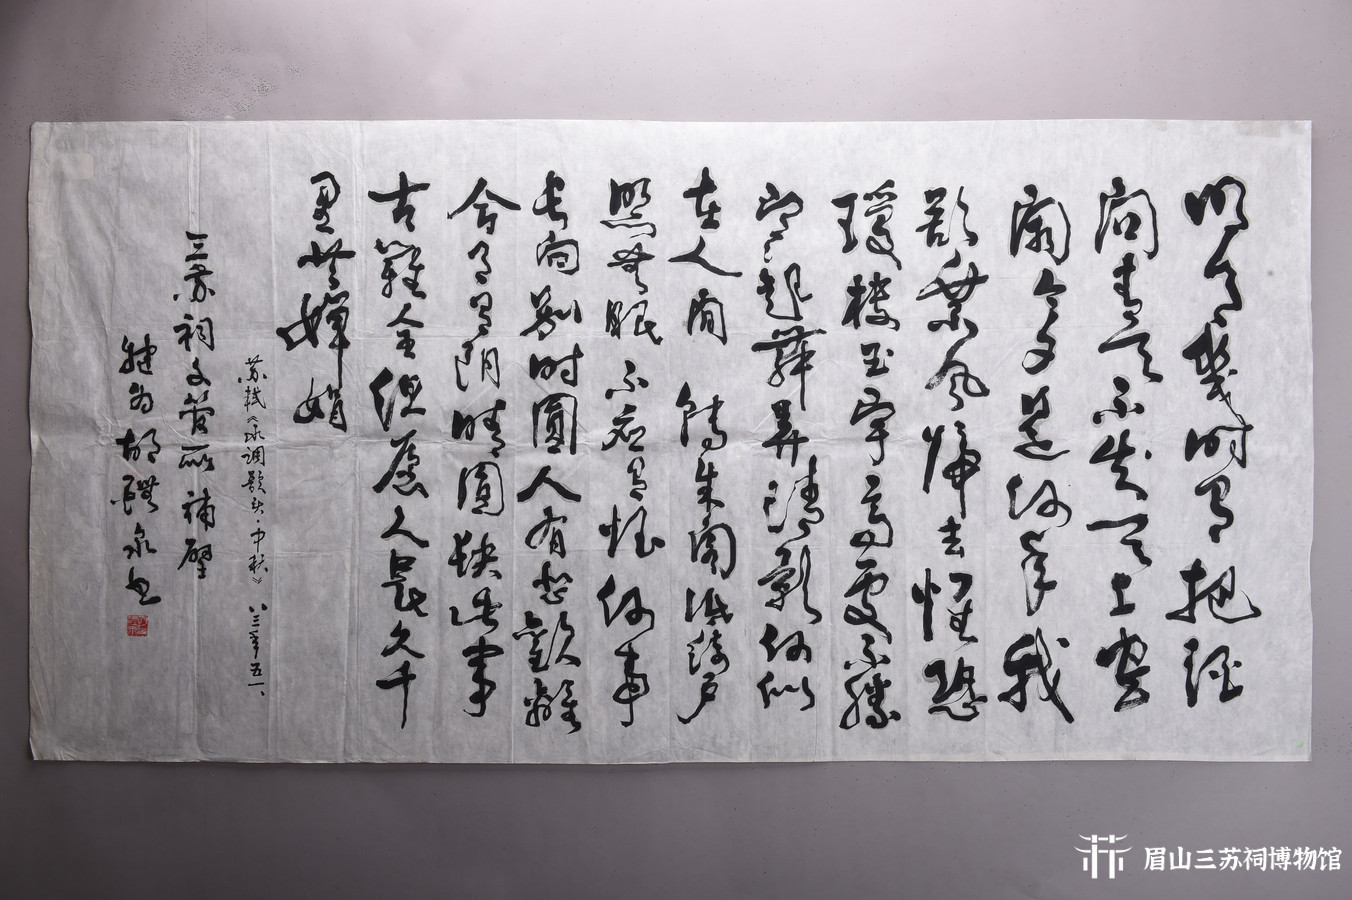 明月几时有把酒
问青天不知天上宫
阙今夕是何年我
欲乘风归去惟恐
琼楼玉宇高处不胜
寒起舞弄清影何似
在人间 转朱阁低绮户
照无眠不应有恨何事
长向别时圆人有悲欢离
合月有阴晴圆缺此事
古难全但愿人长久千
里共婵娟
苏轼《水调歌头·中秋》 八三年五一
三苏祠文管所补壁
犍为胡
泉书
眉山三苏祠博物馆